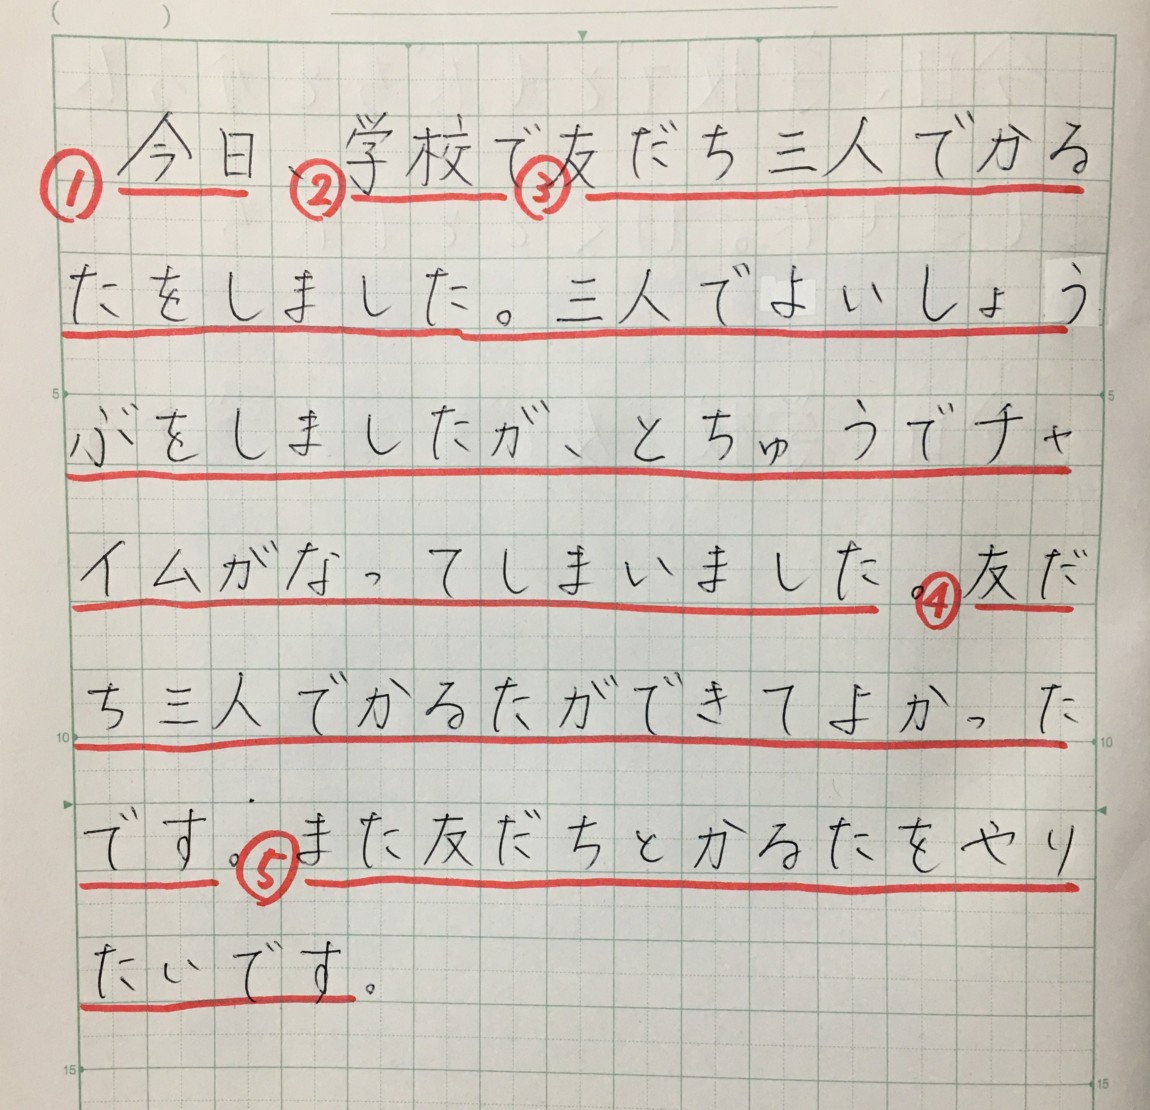 ①今日、②学校で③友だち三人でかる
たをしました。三人でよいしょう
ぶをしましたが、とちゅうでチャ
イムがなってしまいました。④友だ
ち三人でかるたができてよかった
です。⑤また友だちとかるたをやり
たいです。
5
5
10
10
15
15